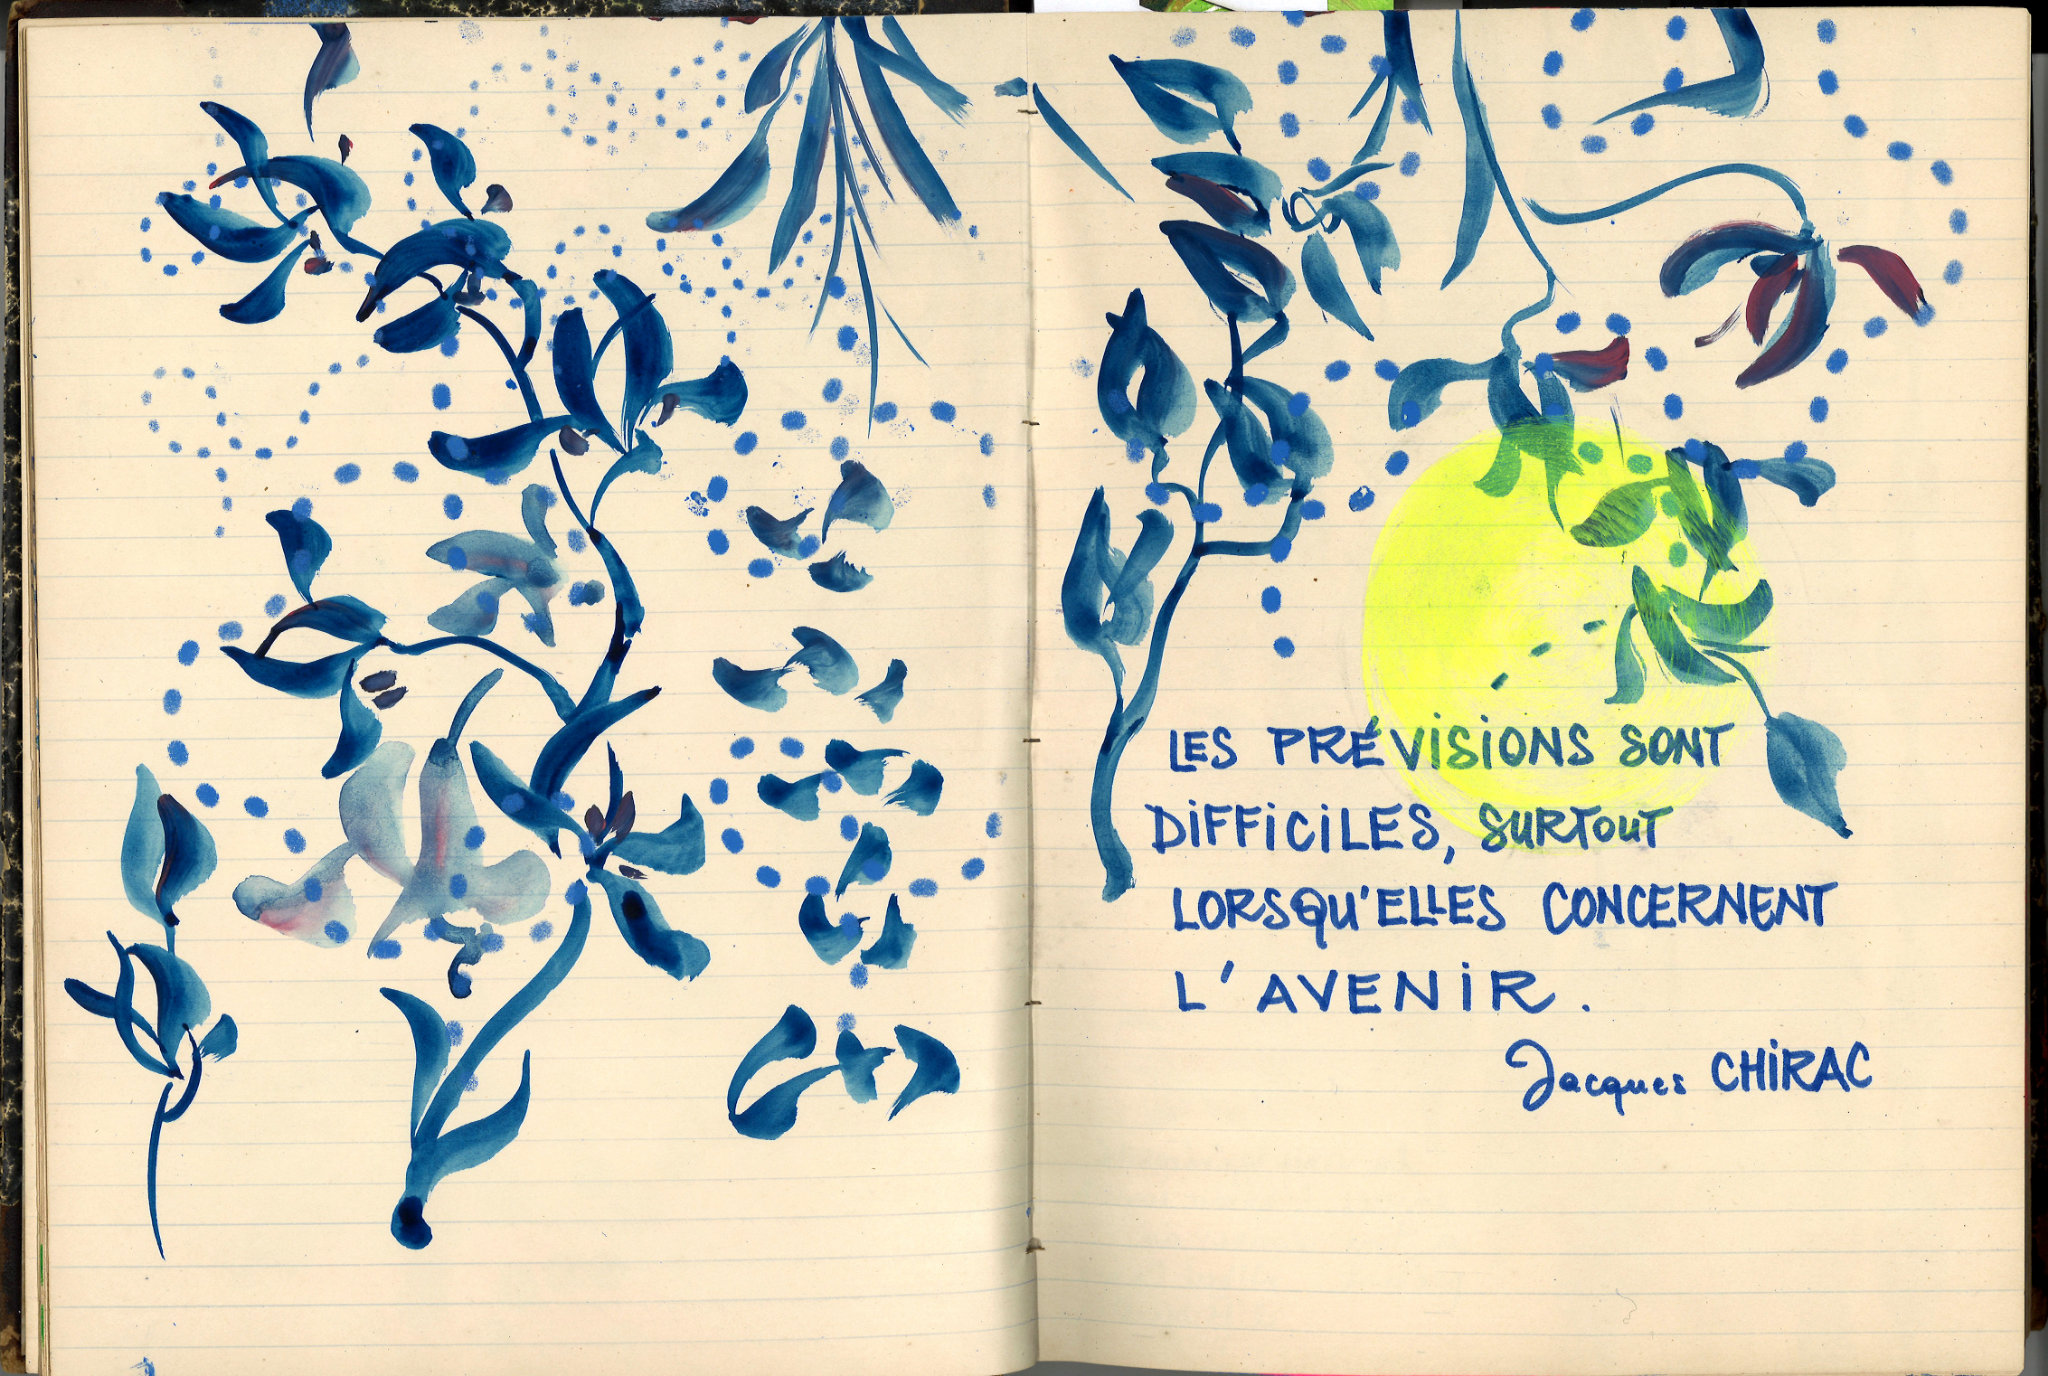 LES PRÉVISIONS SONT
DIFFICILES, SURTOUT
LORSQU'ELLES CONCERNENT
L'AVENIR.
Jacques CHIRAC